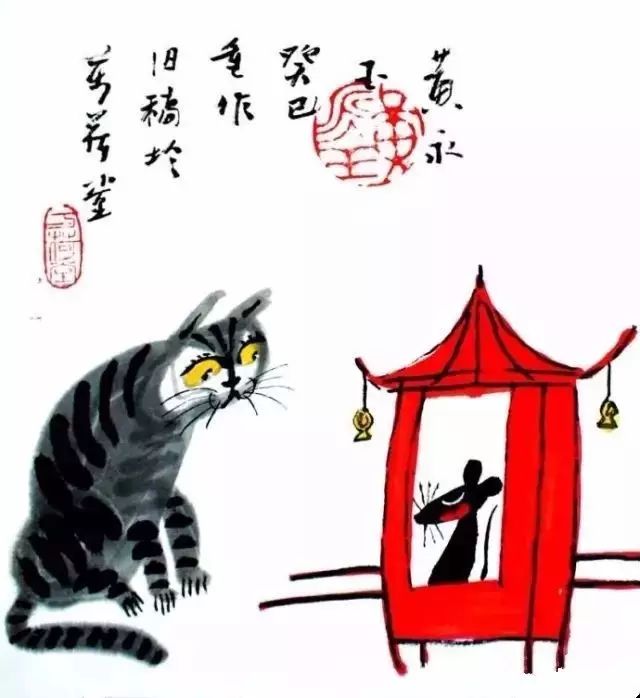 黄永
玉
癸巳
重作
旧稿于
万荷堂